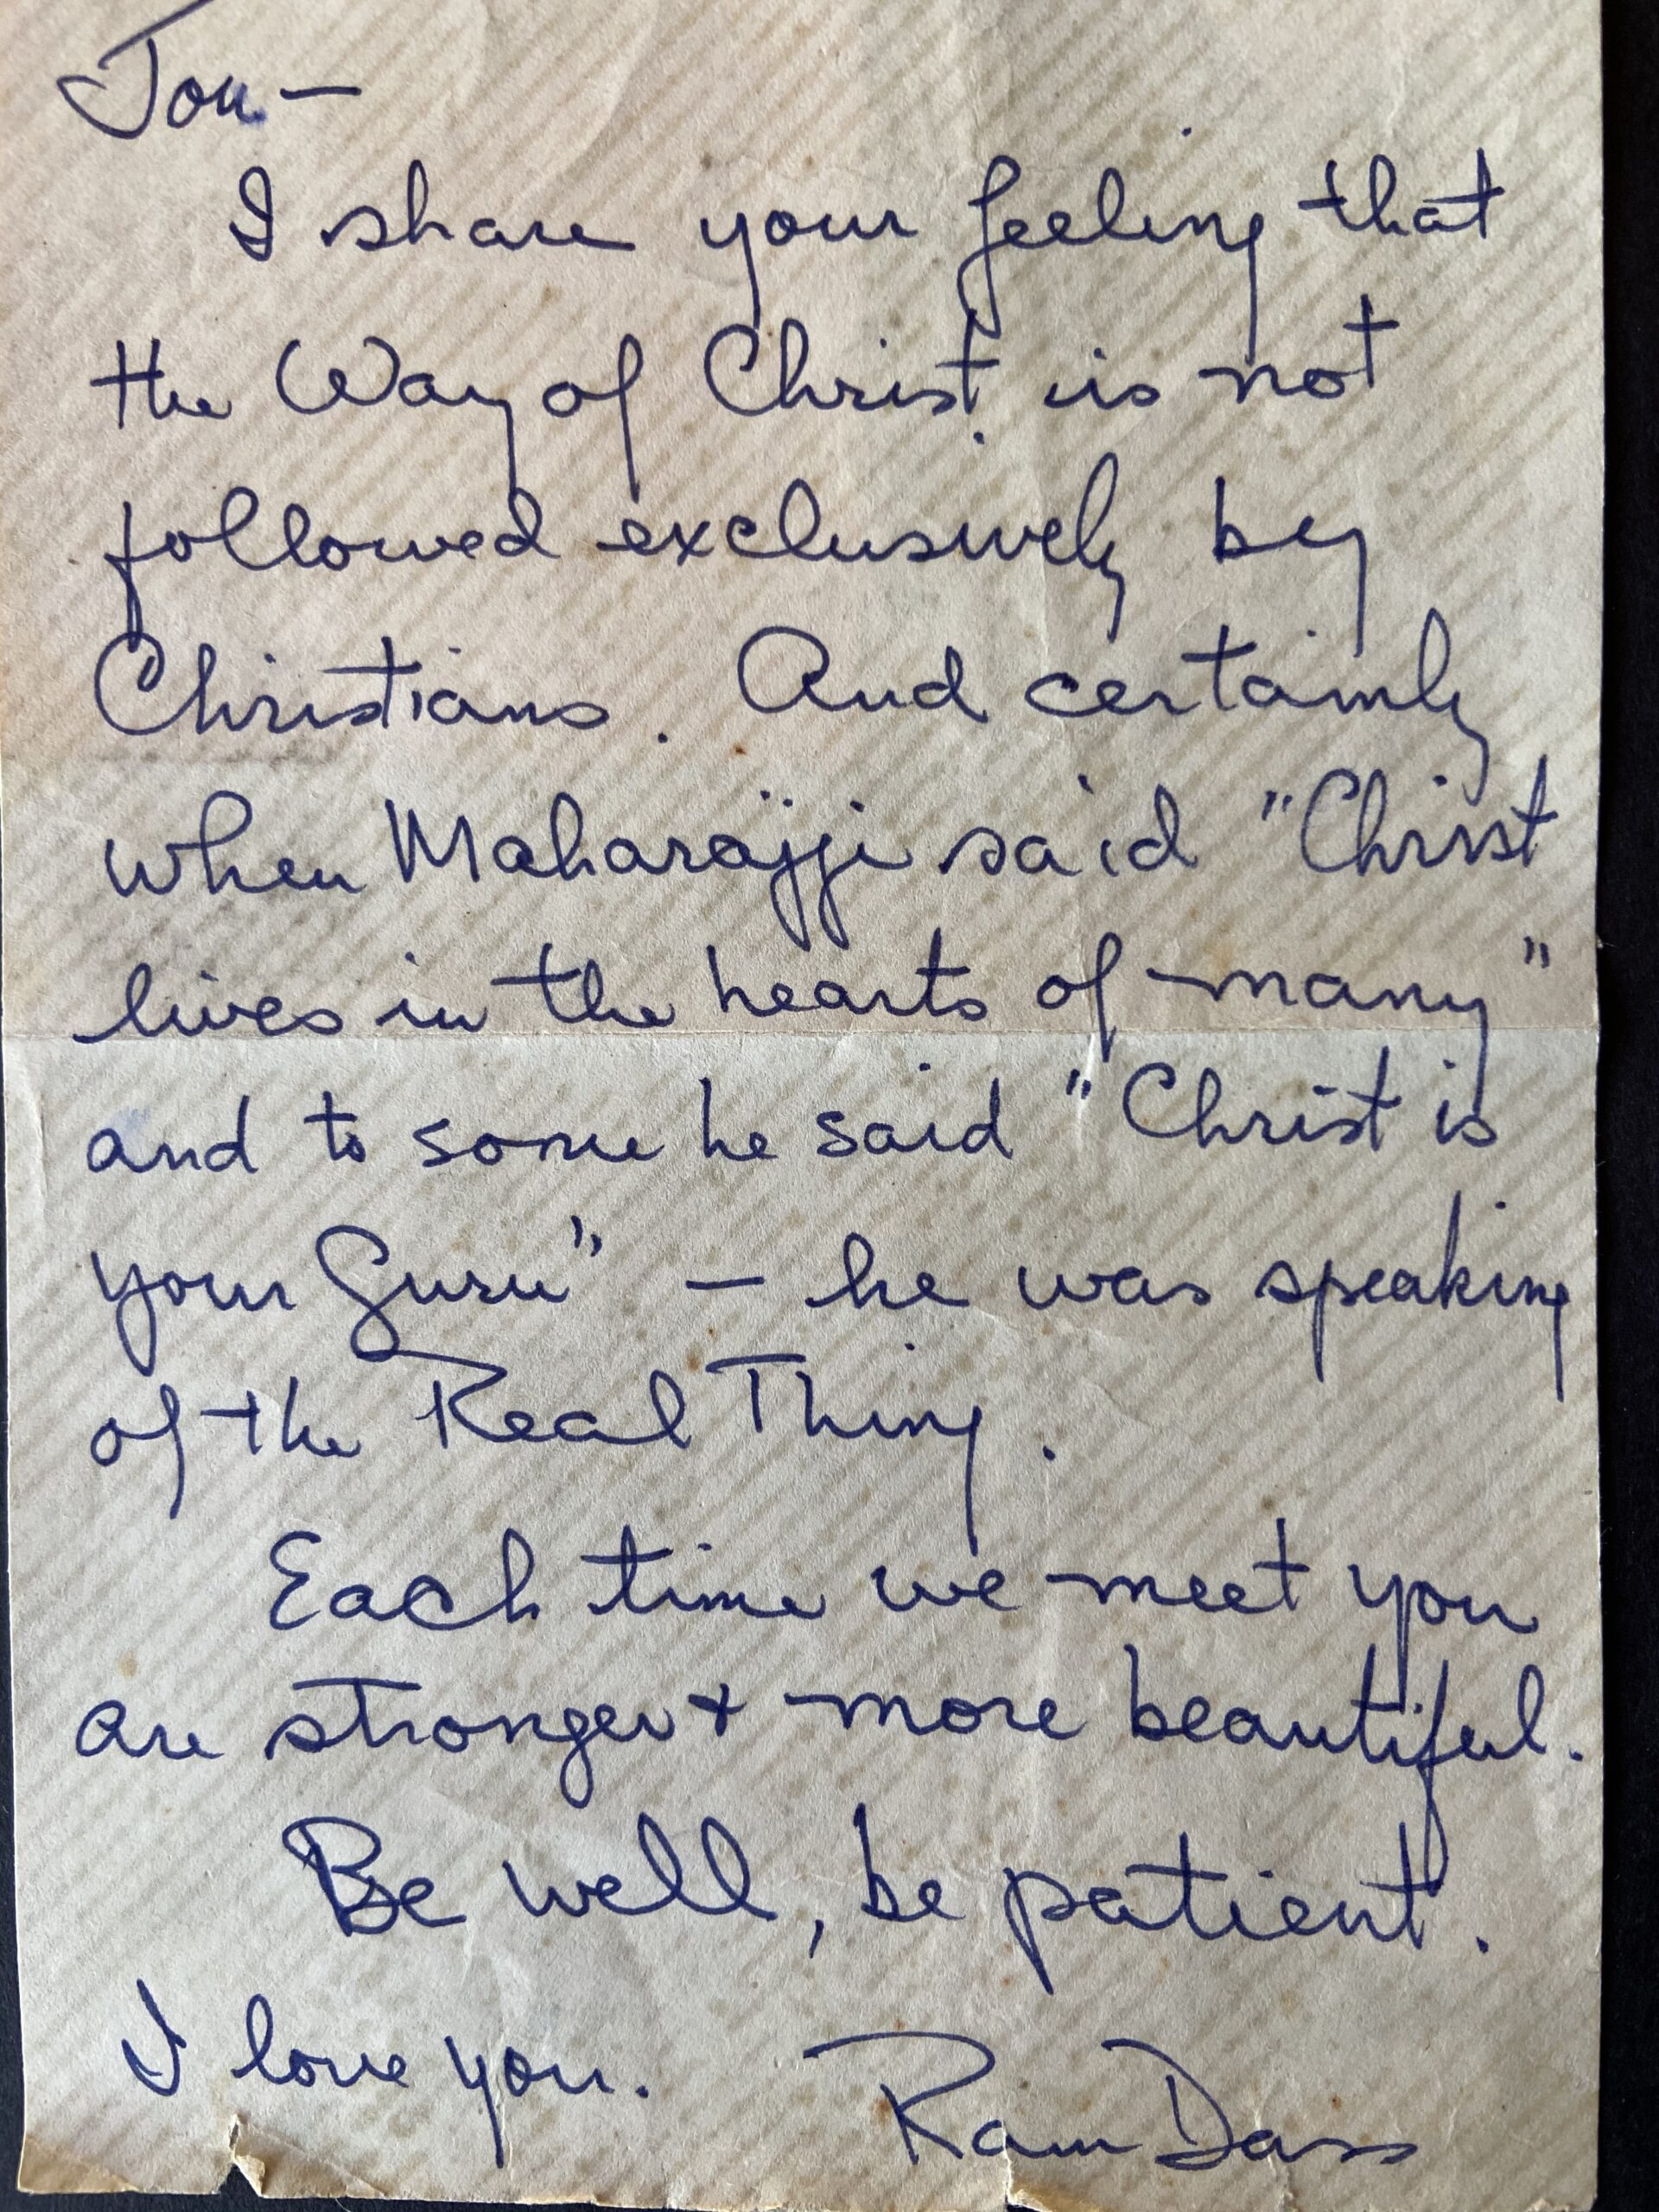 Jon —
I share your feeling that
the Way of Christ is not
followed exclusively by
Christians. And certainly
when Maharajji said "Christ
lives in the hearts of many"
and to some he said "Christ is
your Guru" — he was speaking
of the Real Thing.
Each time we meet you
are stronger & more beautiful.
Be well, be patient.
I love you. Ram Dass